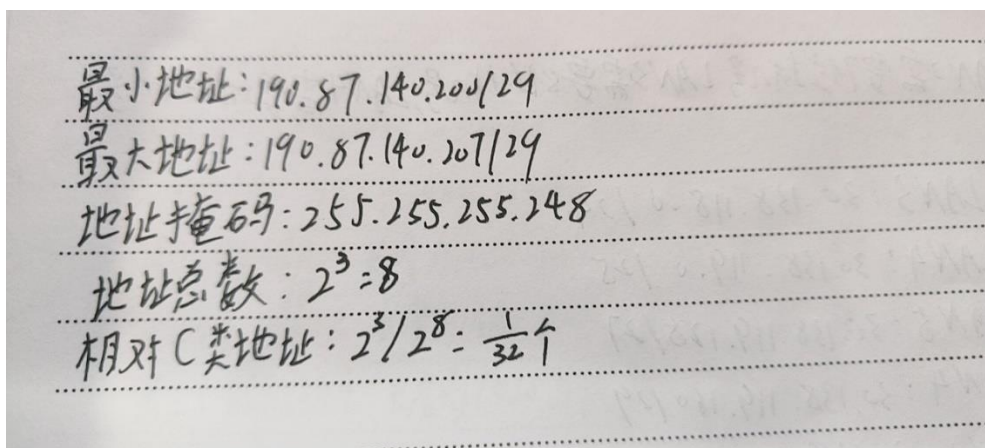 最小地址:190.87.140.200/29
最大地址:190.87.140.207/29
地址掩码:255.255.255.248
地址总数:2³=8
相对C类地址:2³/2⁸=1/32个